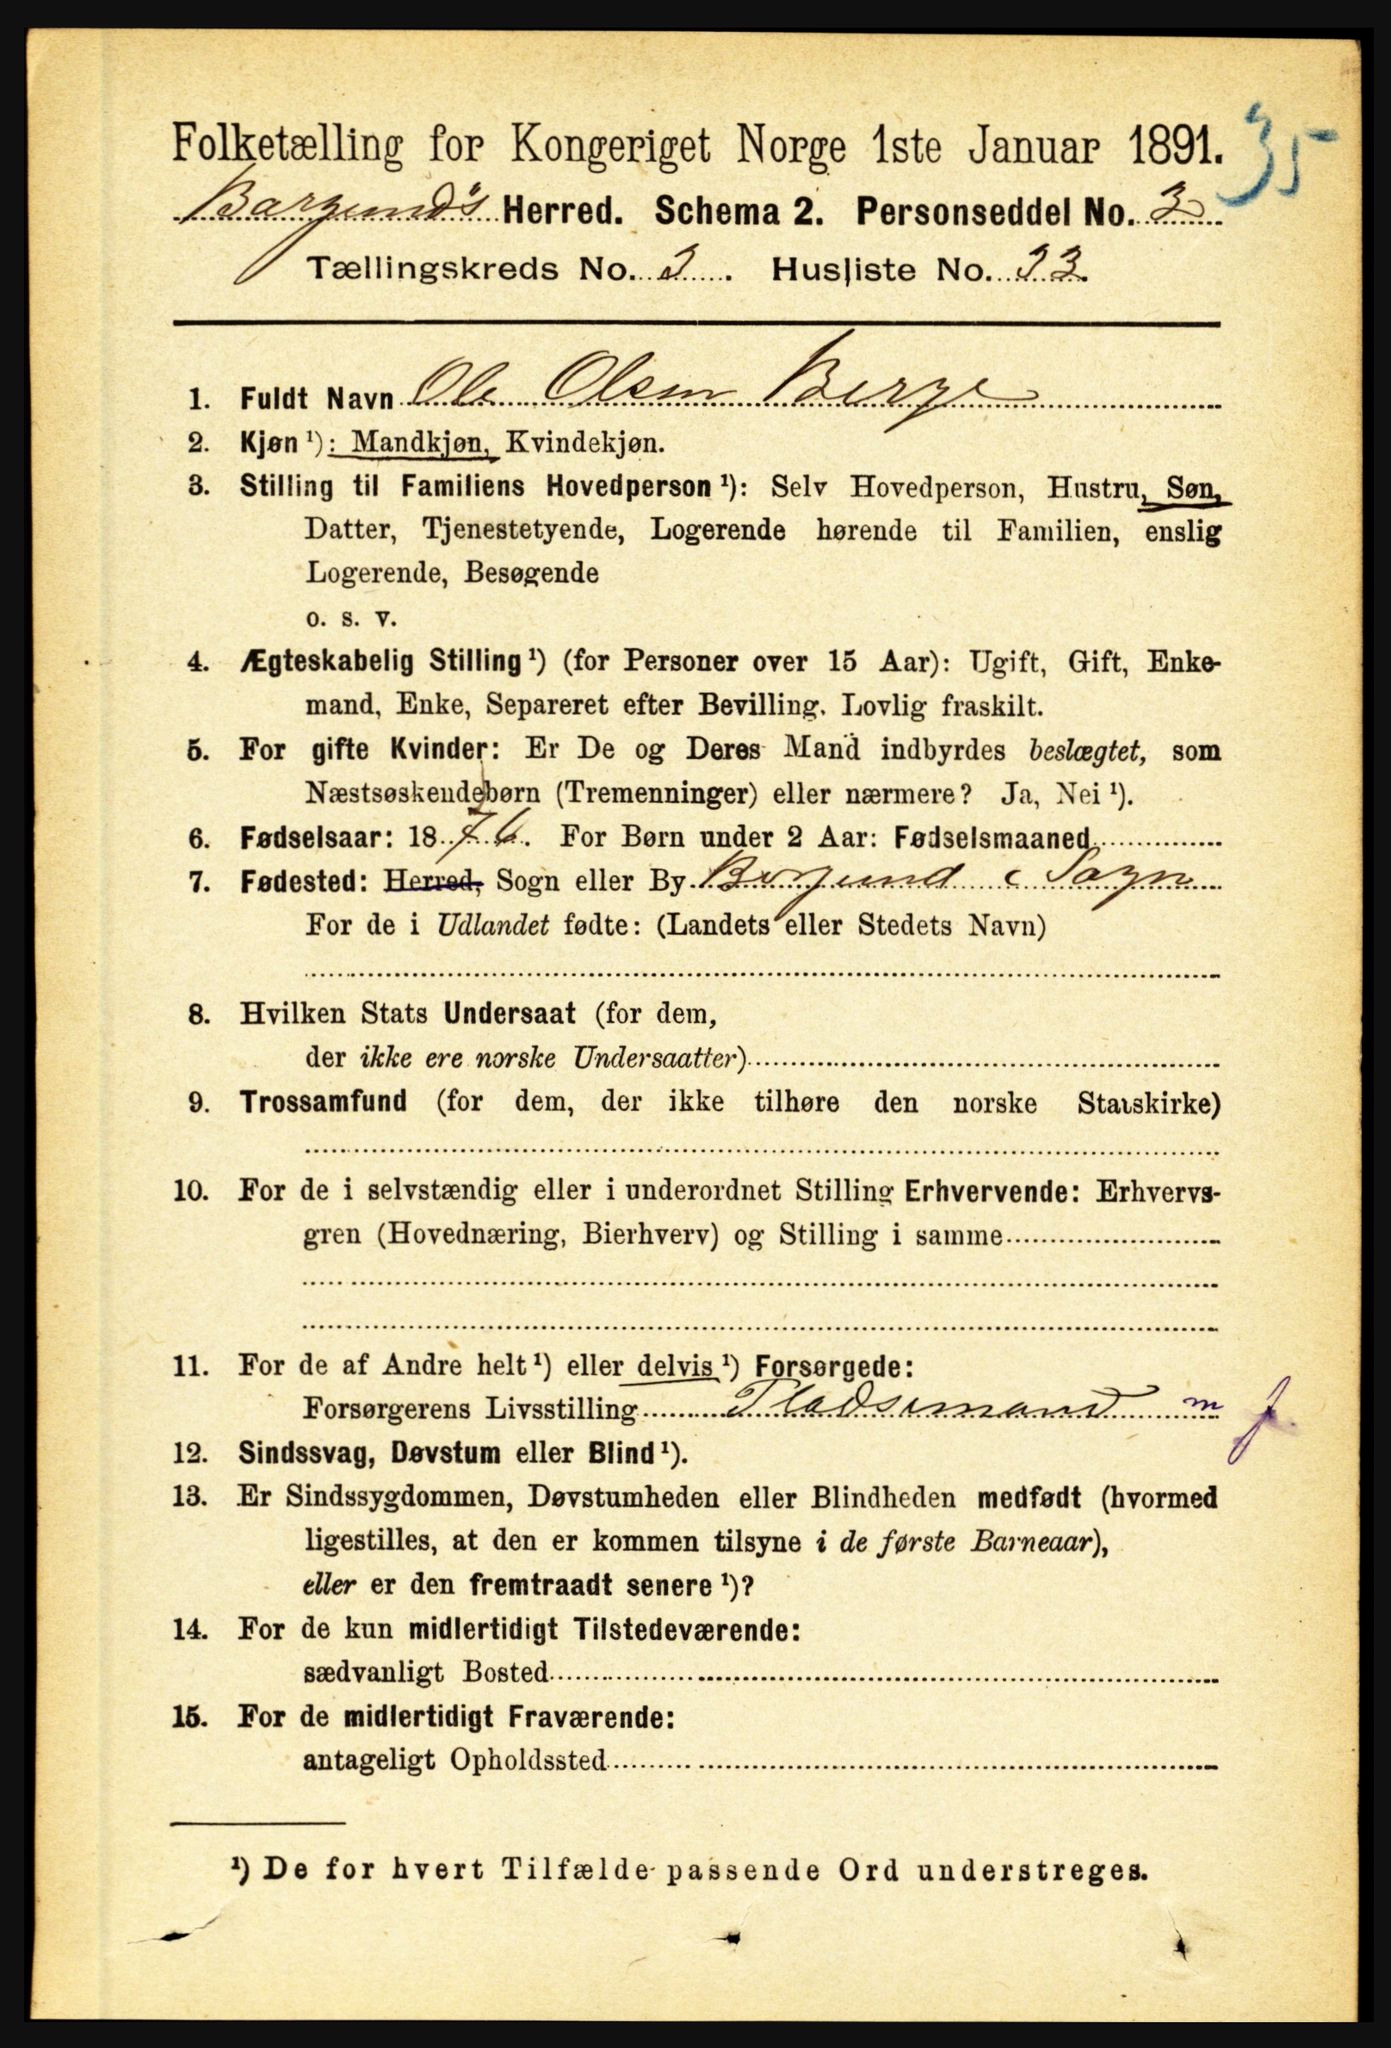 Folketælling for Kongeriget Norge 1ste Januar 1891. 35
Borgund's Herred. Schema 2. Personseddel No. 3
Tællingskreds No. 3. Husliste No. 33.
1. Fuldt Navn Ole Olsen Berge
2. Kjøn ¹): Mandkjøn, Kvindekjøn.
3. Stilling til Familiens Hovedperson ¹): Selv Hovedperson, Hustru, Søn,
Datter, Tjenestetyende, Logerende hørende til Familien, enslig
Logerende, Besøgende
o. s. v.
4. Ægteskabelig Stilling ¹) (for Personer over 15 Aar): Ugift, Gift, Enke-
mand, Enke, Separeret efter Bevilling. Lovlig fraskilt.
5. For gifte Kvinder: Er De og Deres Mand indbyrdes beslægtet, som
Næstsøskendebørn (Tremenninger) eller nærmere? Ja, Nei ¹).
6. Fødselsaar: 1876. For Børn under 2 Aar: Fødselsmaaned
7. Fødested: Herred, Sogn eller By Borgund i Sogn
For de i Udlandet fødte: (Landets eller Stedets Navn)
8. Hvilken Stats Undersaat (for dem,
der ikke ere norske Undersaatter)
9. Trossamfund (for dem, der ikke tilhøre den norske Statskirke)
10. For de i selvstændig eller i underordnet Stilling Erhvervende: Erhvervs-
gren (Hovednæring, Bierhverv) og Stilling i samme
11. For de af Andre helt ¹) eller delvis ¹) Forsørgede:
Forsørgerens Livsstilling Pladsemand m f
12. Sindssvag, Døvstum eller Blind ¹).
13. Er Sindssygdommen, Døvstumheden eller Blindheden medfødt (hvormed
ligestilles, at den er kommen tilsyne i de første Barneaar),
eller er den fremtraadt senere ¹)?
14. For de kun midlertidigt Tilstedeværende:
sædvanligt Bosted
15. For de midlertidigt Fraværende:
antageligt Opholdssted
¹) De for hvert Tilfælde passende Ord understreges.